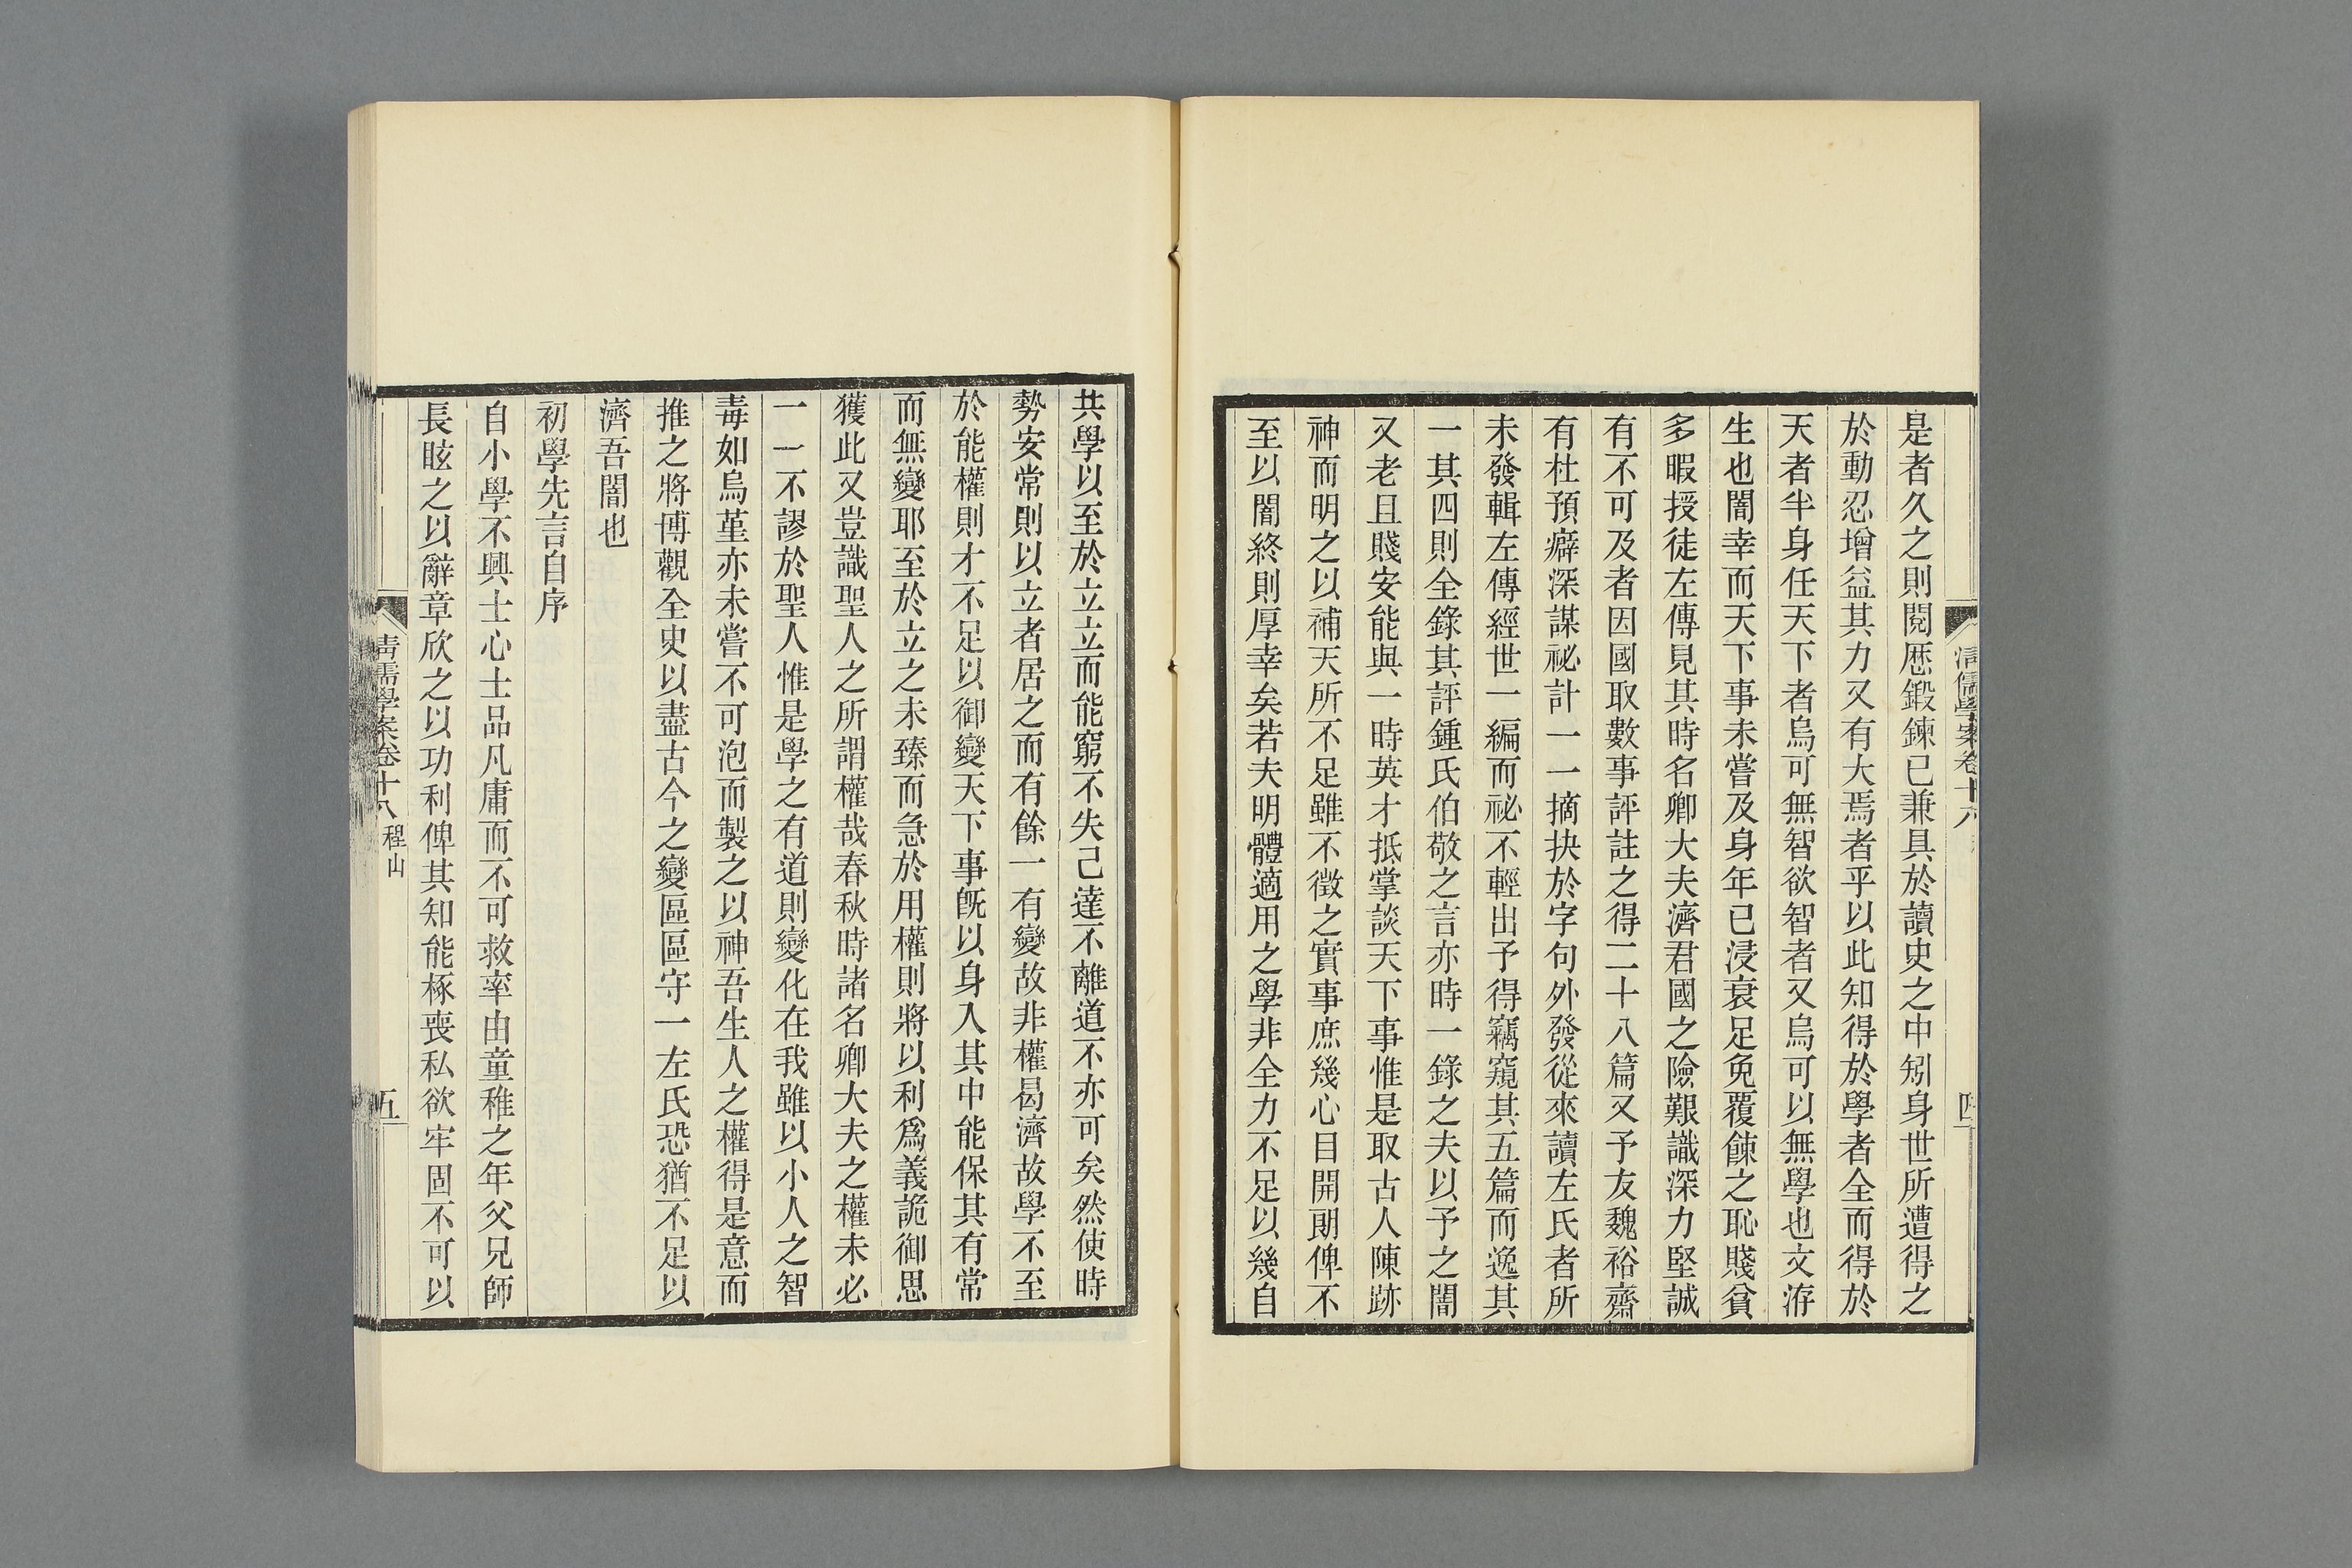 是者久之則閱歷鍛鍊已兼具於讀史之中矧身世所遭得之
於動忍增益其力又有大焉者乎以此知得於學者全而得於
天者半身任天下者烏可無智欲智者又烏可以無學也文洊
生也闇幸而天下事未嘗及身年已浸衰足免覆餗之恥賤貧
多暇授徒左傳見其時名卿大夫濟君國之險艱識深力堅誠
有不可及者因國取數事評註之得二十八篇又予友魏裕齋
有杜預癖深謀祕計一一摘抉於字句外發從來讀左氏者所
未發輯左傳經世一編而祕不輕出予得竊窺其五篇而逸其
一其四則全錄其評鍾氏伯敬之言亦時一錄之夫以予之闇
又老且賤安能與一時英才抵掌談天下事惟是取古人陳跡
神而明之以補天所不足雖不徵之實事庶幾心目開朗俾不
至以闇終則厚幸矣若夫明體適用之學非全力不足以幾自
清儒學案卷十八
四
共學以至於立立而能窮不失己達不離道不亦可矣然使時
勢安常則以立者居之而有餘一有變故非權曷濟故學不至
於能權則才不足以御變天下事既以身入其中能保其有常
而無變耶至於立之未臻而急於用權則將以利爲義詭御思
獲此又豈識聖人之所謂權哉春秋時諸名卿大夫之權未必
一一不謬於聖人惟是學之有道則變化在我雖以小人之智
毒如烏堇亦未嘗不可泡而製之以神吾生人之權得是意而
推之將博觀全史以盡古今之變區區守一左氏恐猶不足以
濟吾闇也
初學先言自序
自小學不興士心士品凡庸而不可救率由童稚之年父兄師
長眩之以辭章欣之以功利俾其知能椓喪私欲牢固不可以
清儒學案卷十八 程山
五